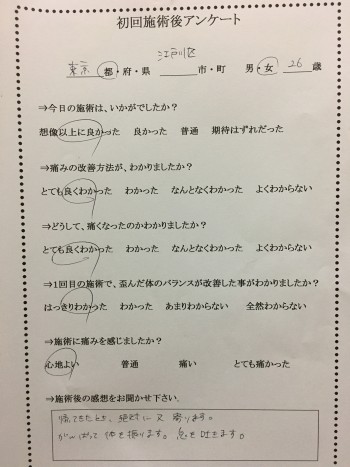 初回施術後アンケート
江戸川区
東京 都・府・県 市・町 男・女 26 歳
⇒今日の施術は、いかがでしたか？
想像以上に良かった 良かった 普通 期待はずれだった
⇒痛みの改善方法が、わかりましたか？
とても良くわかった わかった なんとなくわかった よくわからない
⇒どうして、痛くなったのかわかりましたか？
とても良くわかった わかった なんとなくわかった よくわからない
⇒1回目の施術で、歪んだ体のバランスが改善した事がわかりましたか？
はっきりわかった わかった あまりわからない 全然わからない
⇒施術に痛みを感じましたか？
心地よい 普通 痛い とても痛かった
⇒施術後の感想をお聞かせ下さい.
帰ってきたとき、絶対に又 寄ります。
がんばって 体を振ります。息を吐きます。